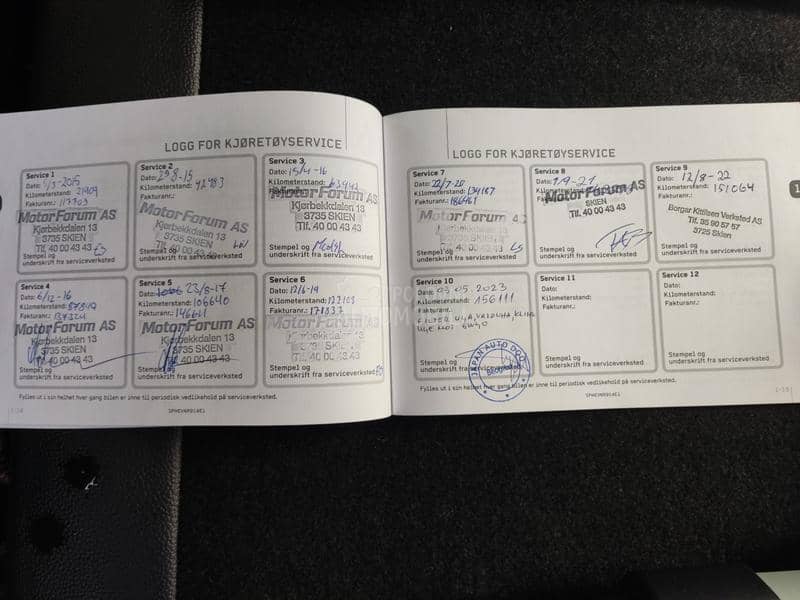 LOGG FOR KJØRETØYSERVICE
Service 1
Dato: 5/3-2015
Kilometerstand: 21909
Fakturanr.:
MotorForum AS
Kjørbekkdalen 13
3735 SKIEN
Tlf. 40 00 43 43
Stempel og
underskrift fra serviceverksted
Service 2
Dato:
Kilometerstand: 42983
Fakturanr.:
MotorForum AS
Kjørbekkdalen 13
3735 SKIEN
Tlf. 40 00 43
Stempel og
underskrift fra serviceverksted
Service 3
Dato: 15/4-16
Kilometerstand: 63442
Fakturanr.:
MotorForum AS
Kjørbekkdalen 13
3735 SKIEN
Tlf. 40 00 43 43
Stempel og
underskrift fra serviceverksted
Service 4
Dato: 6/12-16
Kilometerstand:
Fakturanr.:
MotorForum AS
Kjørbekkdalen 13
3735 SKIEN
40 00 43 43
Stempel og
underskrift fra serviceverksted
Service 5
Dato: 23/8-17
Kilometerstand: 106640
Fakturanr.:
MotorForum AS
Kjørbekkdalen 13
3735 SKIEN
40 00 43 43
Stempel og
underskrift fra serviceverksted
Service 6
Dato: 12/6-19
Kilometerstand:
Fakturanr.: 171837
MotorForum AS
Kjørbekkdalen 13
SKIEN
Tlf. 40 00 43 43
Stempel og
underskrift fra serviceverksted
Fylles ut i sin helhet hver gang bilen er inne til periodisk vedlikehold på serviceverksted.
LOGG FOR KJØRETØYSERVICE
Service 7
Dato: 22/7-20
Kilometerstand: 134167
Fakturanr.:
MotorForum
Kjørbekkdalen
3735 SKIEN
40 00 43 43
Stempel og
underskrift fra serviceverksted
Service 8
Dato: 1.9-21
Kilometerstand:
Fakturanr.:
MotorForum AS
Kjørbekkdalen 13
3735 SKIEN
Tlf. 40 00 43 43
Stempel og
underskrift fra serviceverksted
Service 9
Dato: 12/8-22
Kilometerstand: 151064
Fakturanr.:
Borgar Kittilsen Verksted AS
Tlf. 35 90 57 57
3725 Skien
Stempel og
underskrift fra serviceverksted
Service 10
Dato: 03.05.2023
Kilometerstand: 156111
Fakturanr.:
Stempel og
underskrift fra serviceverksted
JAPAN AUTO
Service 11
Dato:
Kilometerstand:
Fakturanr.:
Stempel og
underskrift fra serviceverksted
Service 12
Dato:
Kilometerstand:
Fakturanr.:
Stempel og
underskrift fra serviceverksted
Fylles ut i sin helhet hver gang bilen er inne til periodisk vedlikehold på serviceverksted.